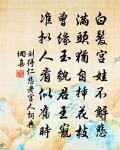 白髮宮娃不解悲
滿頭猶自插花枝
曾緣玉貌君王寵
準擬人看似舊時
劉得仁悲老宮人